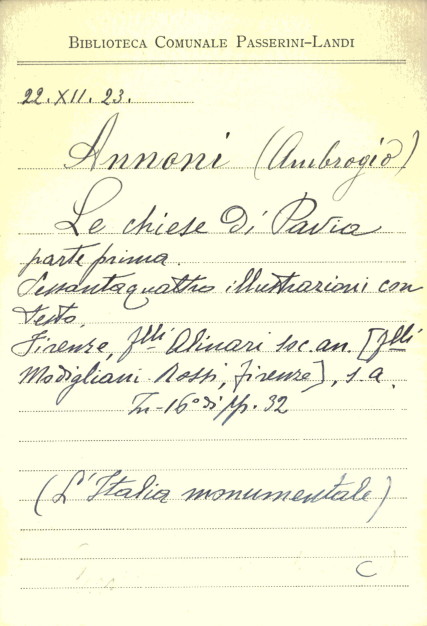 BIBLIOTECA COMUNALE PASSERINI-LANDI
22.XII.23.
Annoni (Ambrogio)
Le chiese di Pavia
parte prima.
Sessantaquattro illustrazioni con
testo.
Firenze, flli Alinari soc. an. [flli
Modigliani Rossi, Firenze], s.a.
In-16° di pp. 32
(L'Italia monumentale)
C